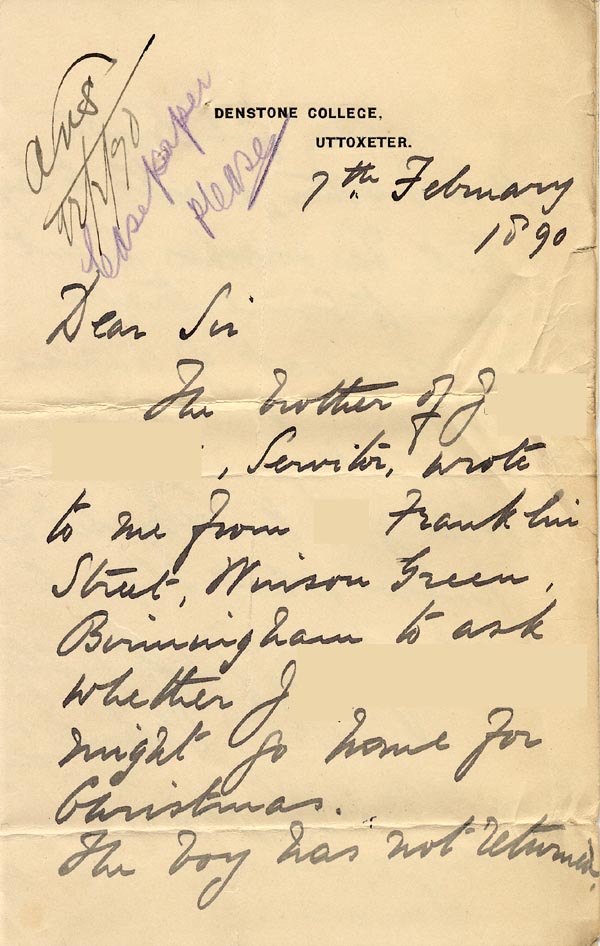 ans
12/2/90
Case paper
please
DENSTONE COLLEGE,
UTTOXETER.
7th February
1890
Dear Sir
The brother of J
, Servitor, wrote
to me from Franklin
Street, Winson Green,
Birmingham to ask
whether J
might go home for
Christmas.
The boy has not returned,